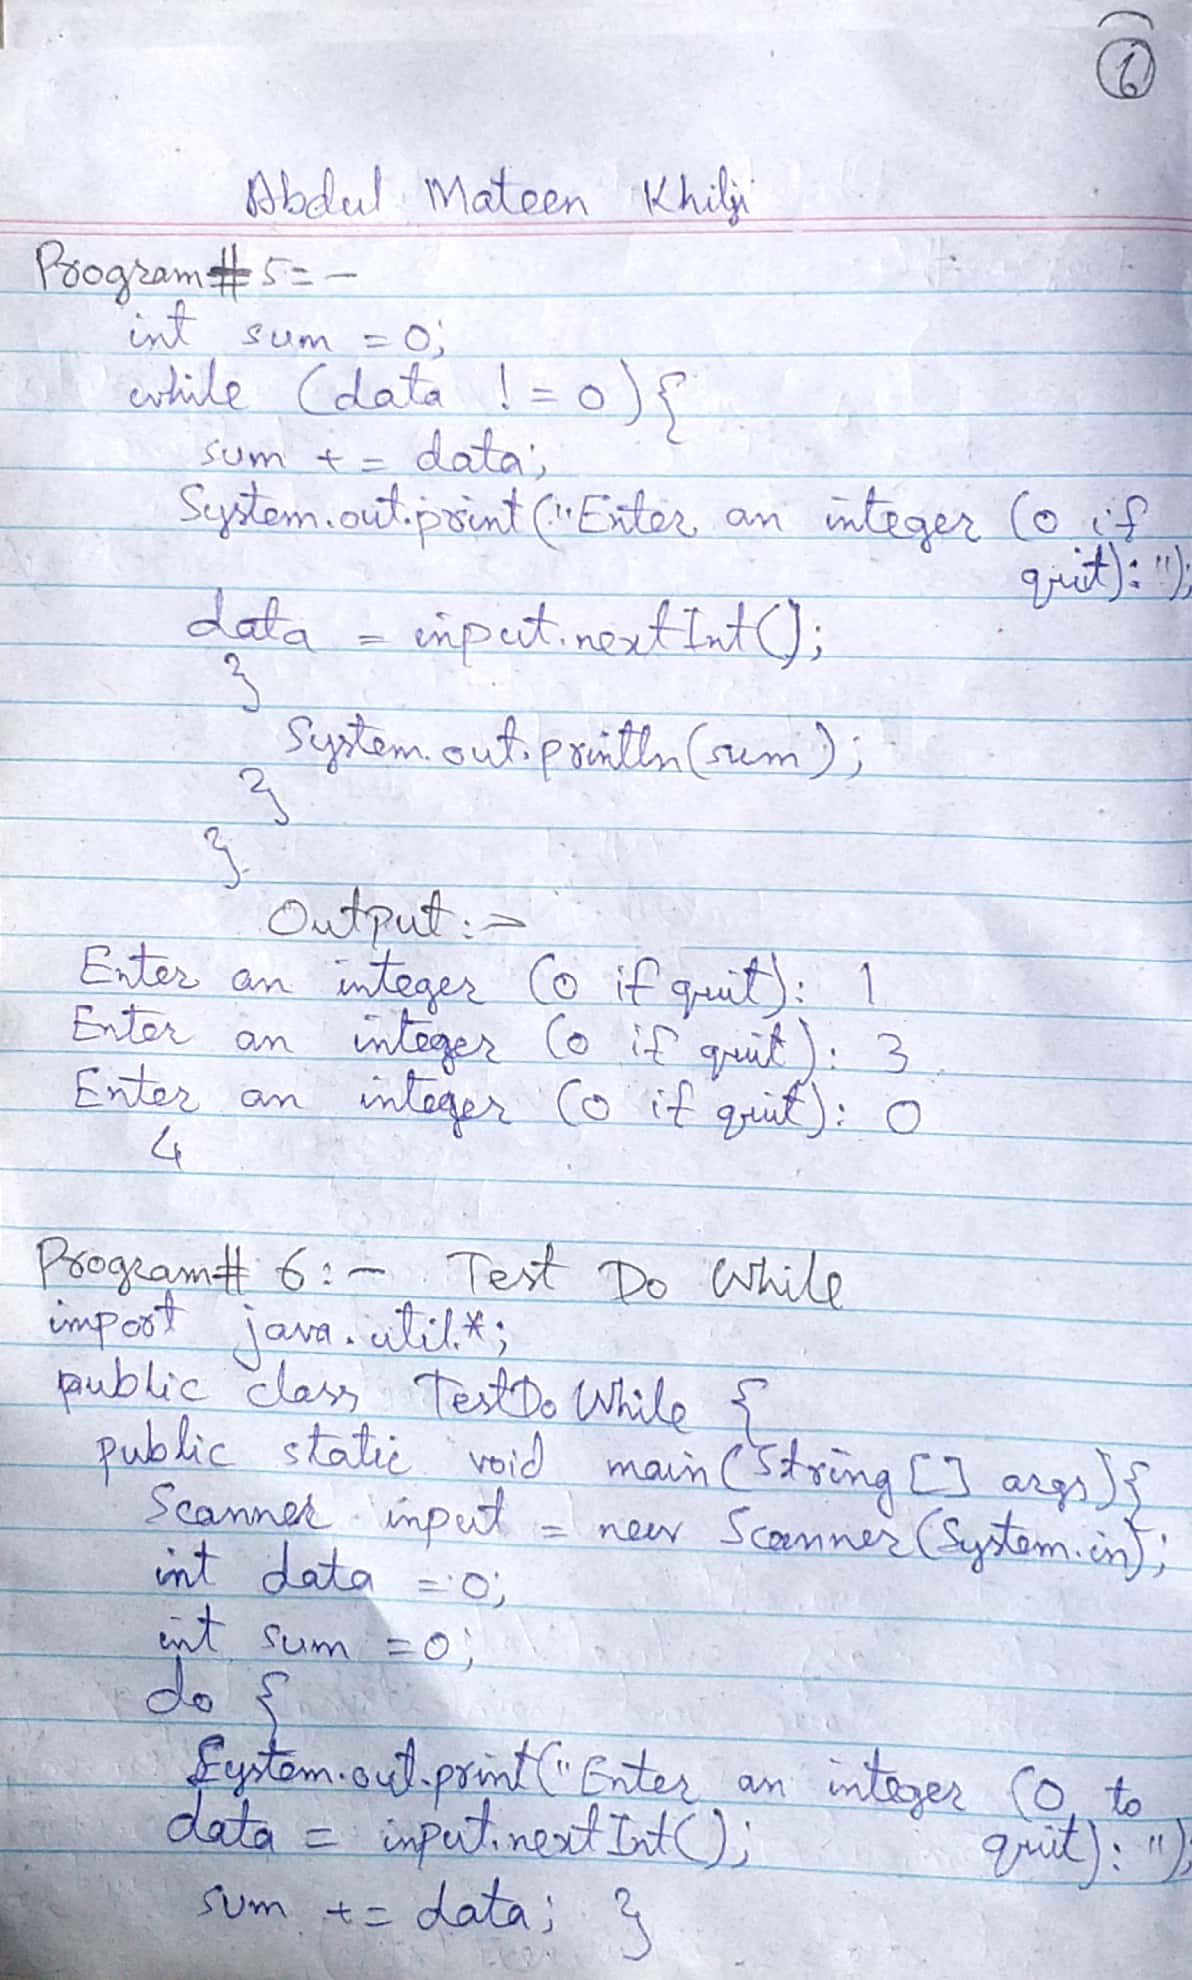 6
Abdul Mateen Khilji
Program # 5:-
int sum = 0;
while (data != 0) {
sum += data;
System.out.print("Enter an integer (0 if
quit): ");
data = input.nextInt();
}
System.out.println(sum);
}
}
Output:-
Enter an integer (0 if quit): 1
Enter an integer (0 if quit): 3
Enter an integer (0 if quit): 0
4
Program# 6:- Test Do While
import java.util.*;
public class TestDoWhile {
public static void main(String [] args) {
Scanner input = new Scanner(System.in);
int data = 0;
int sum = 0;
do {
System.out.print("Enter an integer (0 to
quit): ");
data = input.nextInt();
sum += data; }